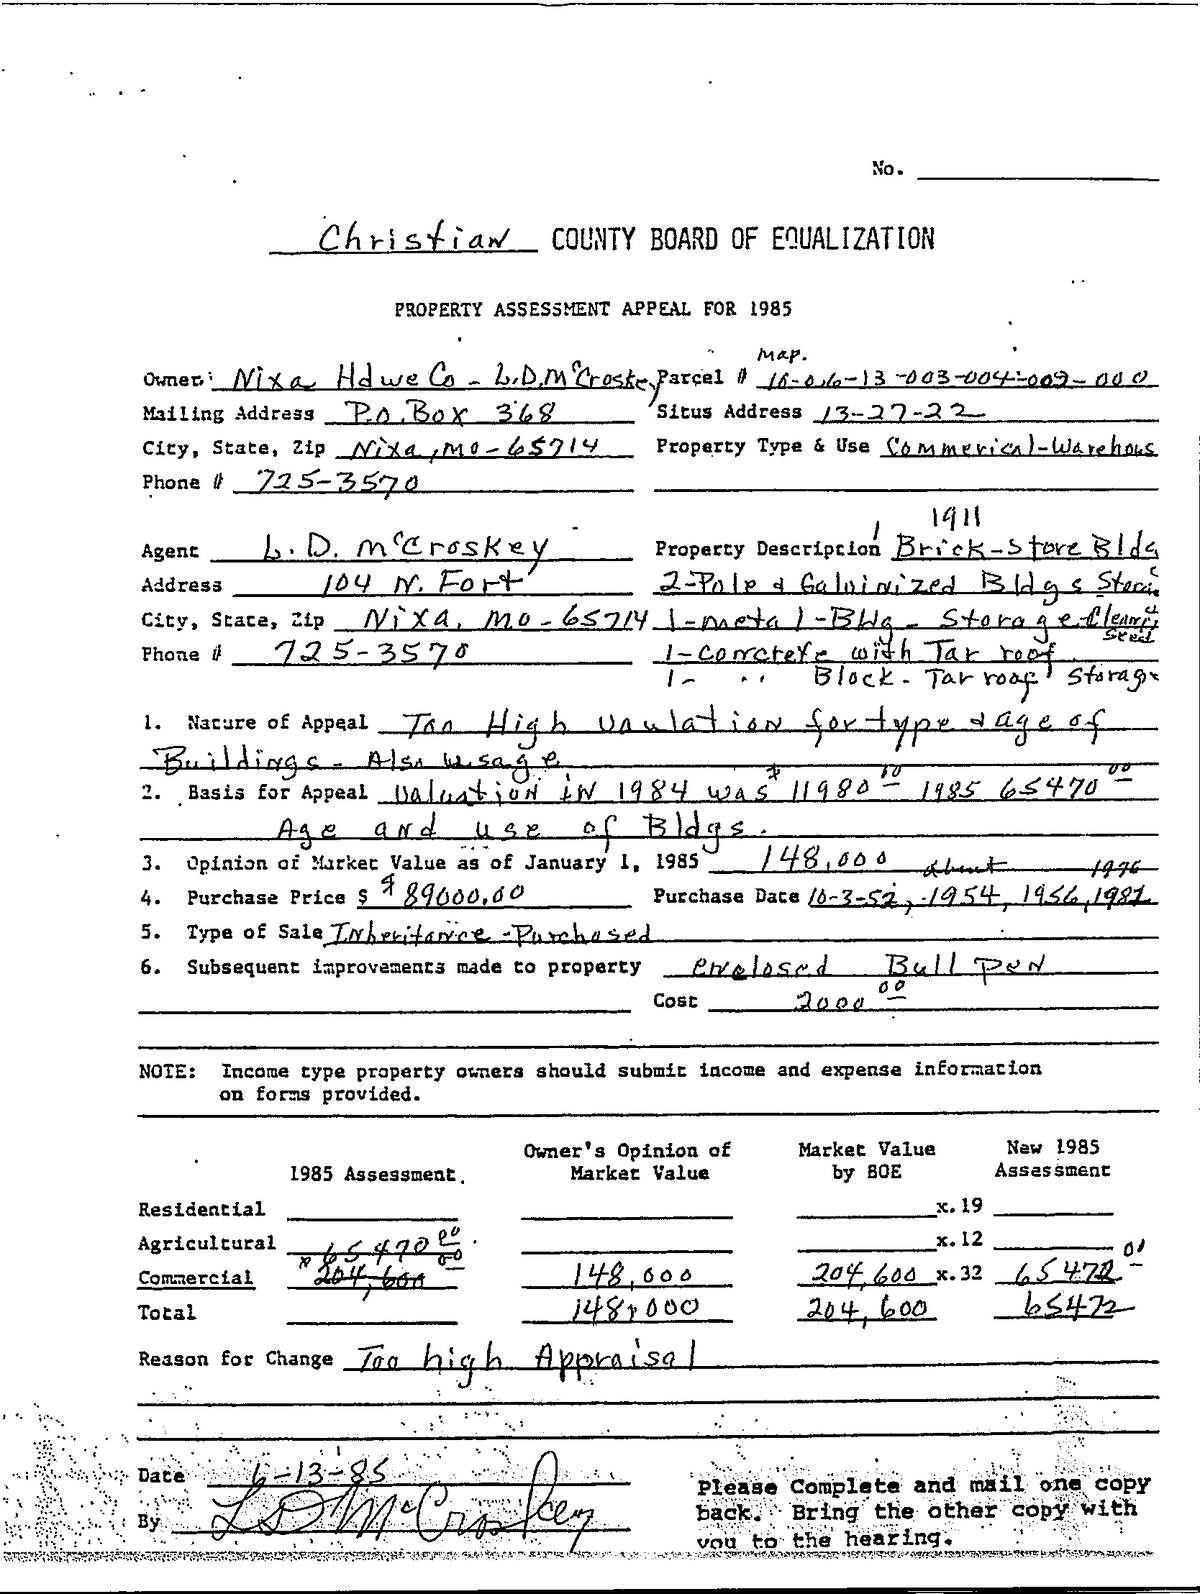 No.
Christian COUNTY BOARD OF EQUALIZATION
PROPERTY ASSESSMENT APPEAL FOR 1985
Map.
Owner: Nixa Hdwe Co - L.D. McCroskey Parcel # 10-0.6-13-003-004-009-000
Mailing Address P.O. Box 368 Situs Address 13-27-22
City, State, Zip Nixa, Mo - 65714 Property Type & Use Commerical-Warehous
Phone # 725-3570
1911
Agent L. D. McCroskey Property Description 1 Brick-Store Bldg
Address 104 N. Fort 2-Pole & Galvinized Bldgs
City, State, Zip Nixa, Mo - 65714 1-metal-Bldg- Storage-Cleaning
Seed
Phone # 725-3570 1-Concrete with Tar roof
1- " Block - Tar roof Storage
1. Nature of Appeal Too High Vaulation for type & age of
Buildings - Also usage
2. Basis for Appeal Valuation in 1984 was $11980 00 1985 65470 00
Age and use of Bldgs.
3. Opinion of Market Value as of January 1, 1985 148,000 about 1976
4. Purchase Price $ $89000.00 Purchase Date 10-3-52, 1954, 1956, 1981
5. Type of Sale Inheritance - Purchased
6. Subsequent improvements made to property enclosed Bull pen
Cost 2000 00
NOTE: Income type property owners should submit income and expense information
on forms provided.
Owner's Opinion of Market Value New 1985
1985 Assessment. Market Value by BOE Assessment
Residential x.19
Agricultural 65470 00 x.12
Commercial 204,600 00 148,000 204,600 x.32 65472
Total 148,000 204,600 65472
Reason for Change Too high Appraisal
Date 6-13-85
Please Complete and mail one copy
back. Bring the other copy with
By LD McCroskey
you to the hearing.